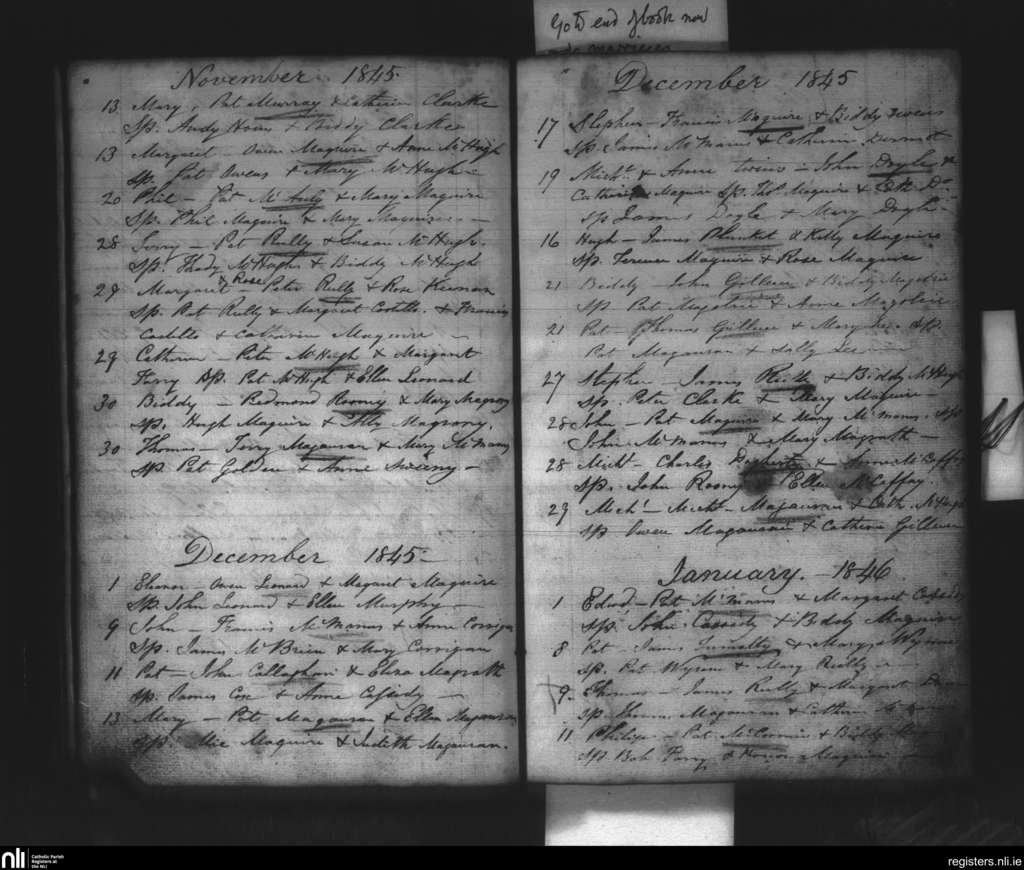 Go to end of book now
for marriages
November 1845
13 Mary, Pat Murray & Catherine Clarke
Sp. Andy & Biddy Clarke
13 Margaret - Owen Maguire & Anne McHugh
Sp. Pat Owens & Mary McHugh -
20 Phil - Pat & Mary Maguire
Sp. Phil Maguire & Mary Maguire -
28 - Pat Reilly & Susan McHugh.
Sp. Thady McHugh & Biddy McHugh
29 Margaret & Rose - Peter Reilly & Rose Keenan
Sp. Pat Reilly & Margaret Costello & Francis
Costello & Catherine Maguire -
29 Catherine - Peter McHugh & Margaret
Farry Sp. Pat McHugh & Ellen Leonard
30 Biddy - Redmond Rooney & Mary
Sp. Hugh Maguire &
30 Thomas - Terry Magauran & Mary McManus
Sp. Pat Golden & Anne Sweeny -
December 1845 -
1 Eleanor - Owen Leonard & Margaret Maguire
Sp. John Leonard & Ellen Murphy -
9 John - Francis McManus & Anne Corrigan
Sp. James McBrien & Mary Corrigan
11 Pat - John Callaghan & Eliza Magrath
Sp. James Cox & Anne Cassidy -
13 Mary - Pat Magauran & Ellen Magauran
Sp. Mic Maguire & Judith Magauran.
December 1845
17 Stephen - Francis Maguire & Biddy Owens
Sp. James McManus & Catherine Dermott
19 Michl. & Anne twins - John Doyle &
Catherine Maguire Sp. Thos. Maguire & Cath Do.
Sp James Doyle & Mary Doyle -
16 Hugh - James Plunket & Kitty Maguire
Sp. Terence Maguire & Rose Maguire
21 Biddy - John Gilleece & Biddy
Sp. Pat & Anne
21 Pat - Thomas Gilleece & Mary Sp.
Pat Magauran & Sally
27 Stephen - James & Biddy McHugh
Sp. Peter Clarke & Mary Maguire -
28 John - Pat Maguire & Mary McManus. Sp
John McManus & Mary Magrath -
28 Michl - Charles & Anne McCaffry
Sp. John Rooney & Ellen McCaffry.
29 Michl - Michl - Magauran & Cath. McHugh
Sp Owen Magauran & Catherine Gilleece
January. - 1846
1 Edwd. - Pat McManus & Margaret Cassidy
Sp. John Cassidy & Biddy Maguire
8 Pat - James & Mary Wynne
Sp. Pat Wynne & Mary Reilly -
9. Thomas - James Reilly & Margaret
Sp. Thomas Magauran & Catherine
11 Philip - Pat McCormic & Biddy
Sp. Bob Farry & Honor Maguire -
nli Catholic Parish
Registers at
the NLI
registers.nli.ie